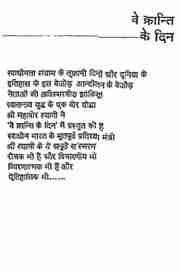 वे क्रान्ति
के दिन
स्वाधीनता संग्राम के तूफानी दिनों और दुनिया के
इतिहास के इस बेजोड़ आन्दोलन के बेजोड़
नेताओं की अविस्मरणीय झांकियां
स्वतन्त्रता युद्ध के एक वीर योद्धा
श्री महावीर त्यागी ने
'वे क्रान्ति के दिन' में प्रस्तुत की हैं
स्वाधीन भारत के भूतपूर्व प्रतिरक्षा मंत्री
श्री त्यागी के ये अनूठे संस्मरण
रोचक भी हैं और विचारणीय भी
विवरणात्मक भी हैं और
ऐतिहासिक भी......